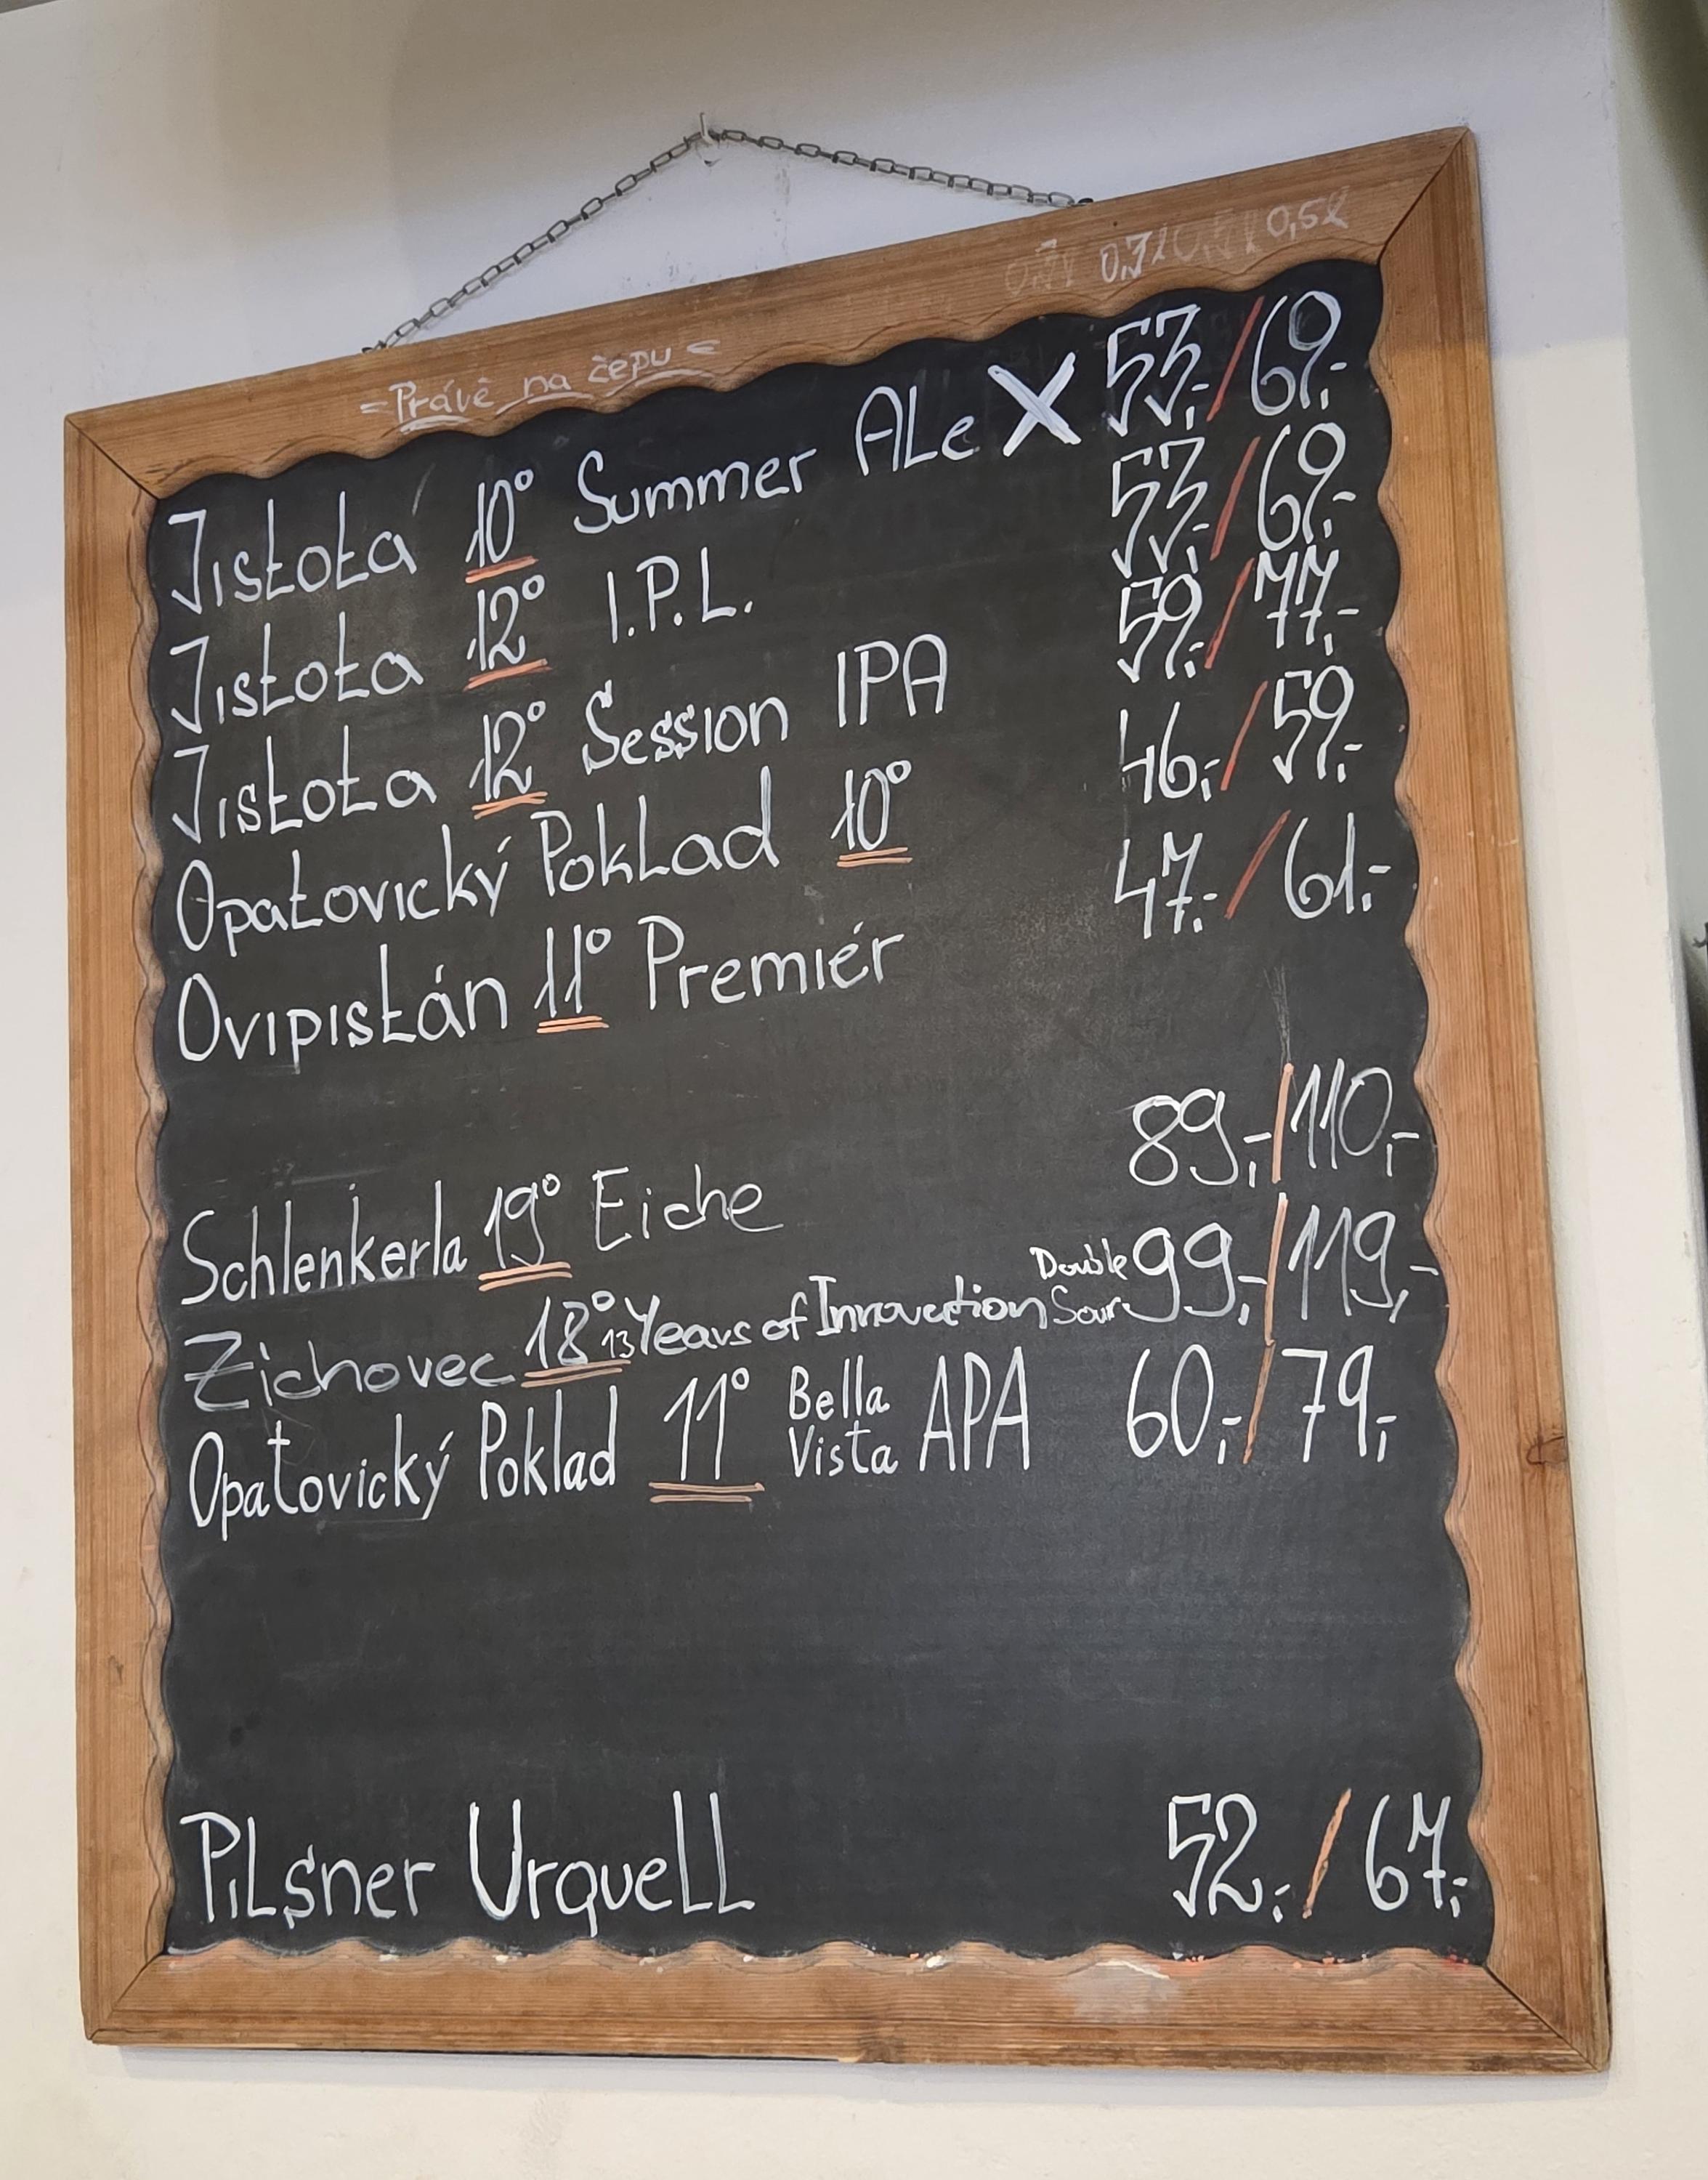 =Právě na čepu=
0,3l 0,5l
Jistota 10° Summer Ale X 53,-/69,-
Jistota 12° I.P.L. 53,-/69,-
Jistota 12° Session IPA 59,-/77,-
Opatovický Poklad 10° 46,-/59,-
Ovipistán 11° Premiér 47,-/61,-
Schlenkerla 19° Eiche 89,-/110,-
Zichovec 18° 13 Years of Innovation Double Sour 99,-/119,-
Opatovický Poklad 11° Bella Vista APA 60,-/79,-
Pilsner Urquell 52,-/67,-